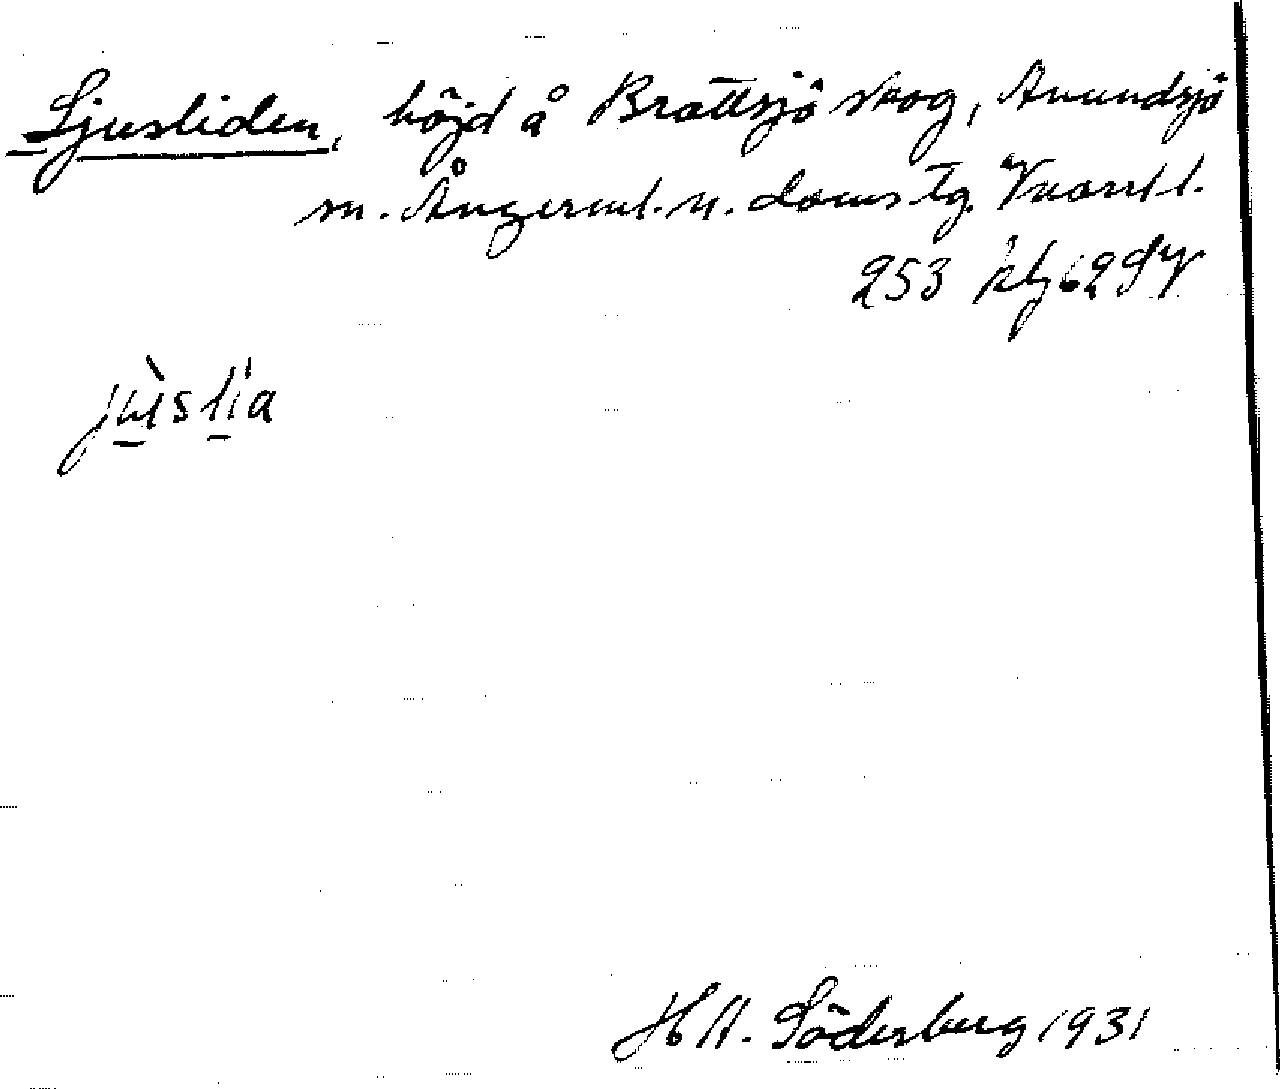 Ljusliden, höjd å Brattsjö skog, Anundsjö
sn. Ångerml. n. doms tg. Västnl.
253 klg 62 SV
jùslía
H A. Söderberg 1931